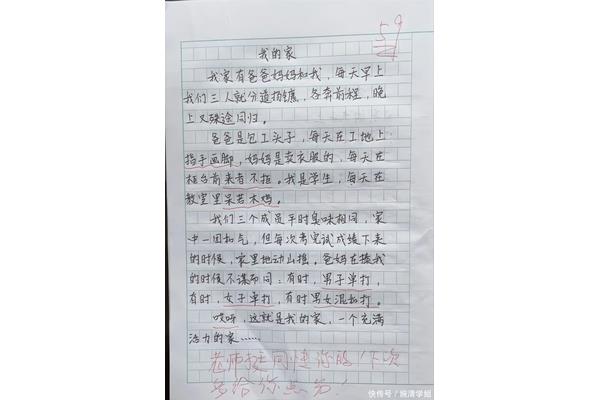 59
我的家
我家有爸爸妈妈和我，每天早上
我们三人就分道扬镳，各奔前程，晚
上又殊途同归。
爸爸是包工头子，每天在工地上
指手画脚，妈妈是卖衣服的，每天在
柜台前来者不拒。我是学生，每天在
教室里呆若木鸡。
我们三个成员平时臭味相同，家
中一团和气，但每次考完试成绩下来
的时候，家里地动山摇。爸妈在揍我
的时候不谋而同：有时，男子单打，
有时，女子单打，有时男女混打。
哎呀，这就是我的家，一个充满
活力的家……
老师挺同情你的！下次
多给你点分！
快传号／婉清学姐